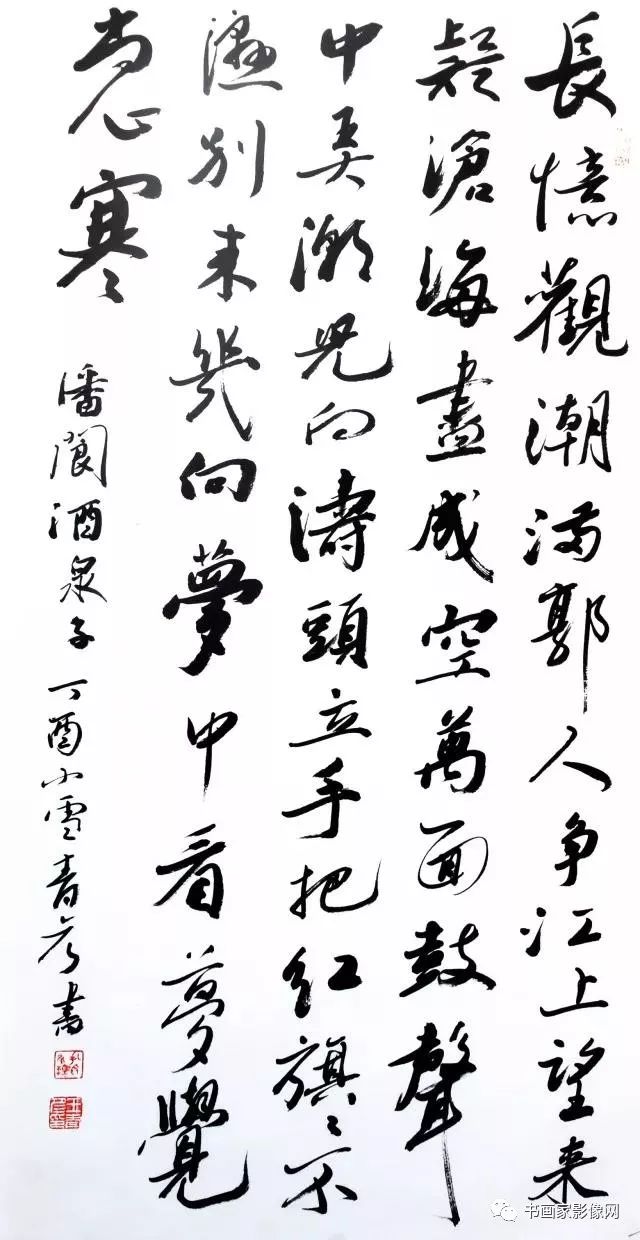 長憶觀潮滿郭人争江上望来
疑滄海盡成空萬面鼓聲
中弄潮兒向濤頭立手把红旗〻不
濕别来幾向夢中看夢覺
尚心寒
潘閬酒泉子丁酉小雪青書
书画家影像网